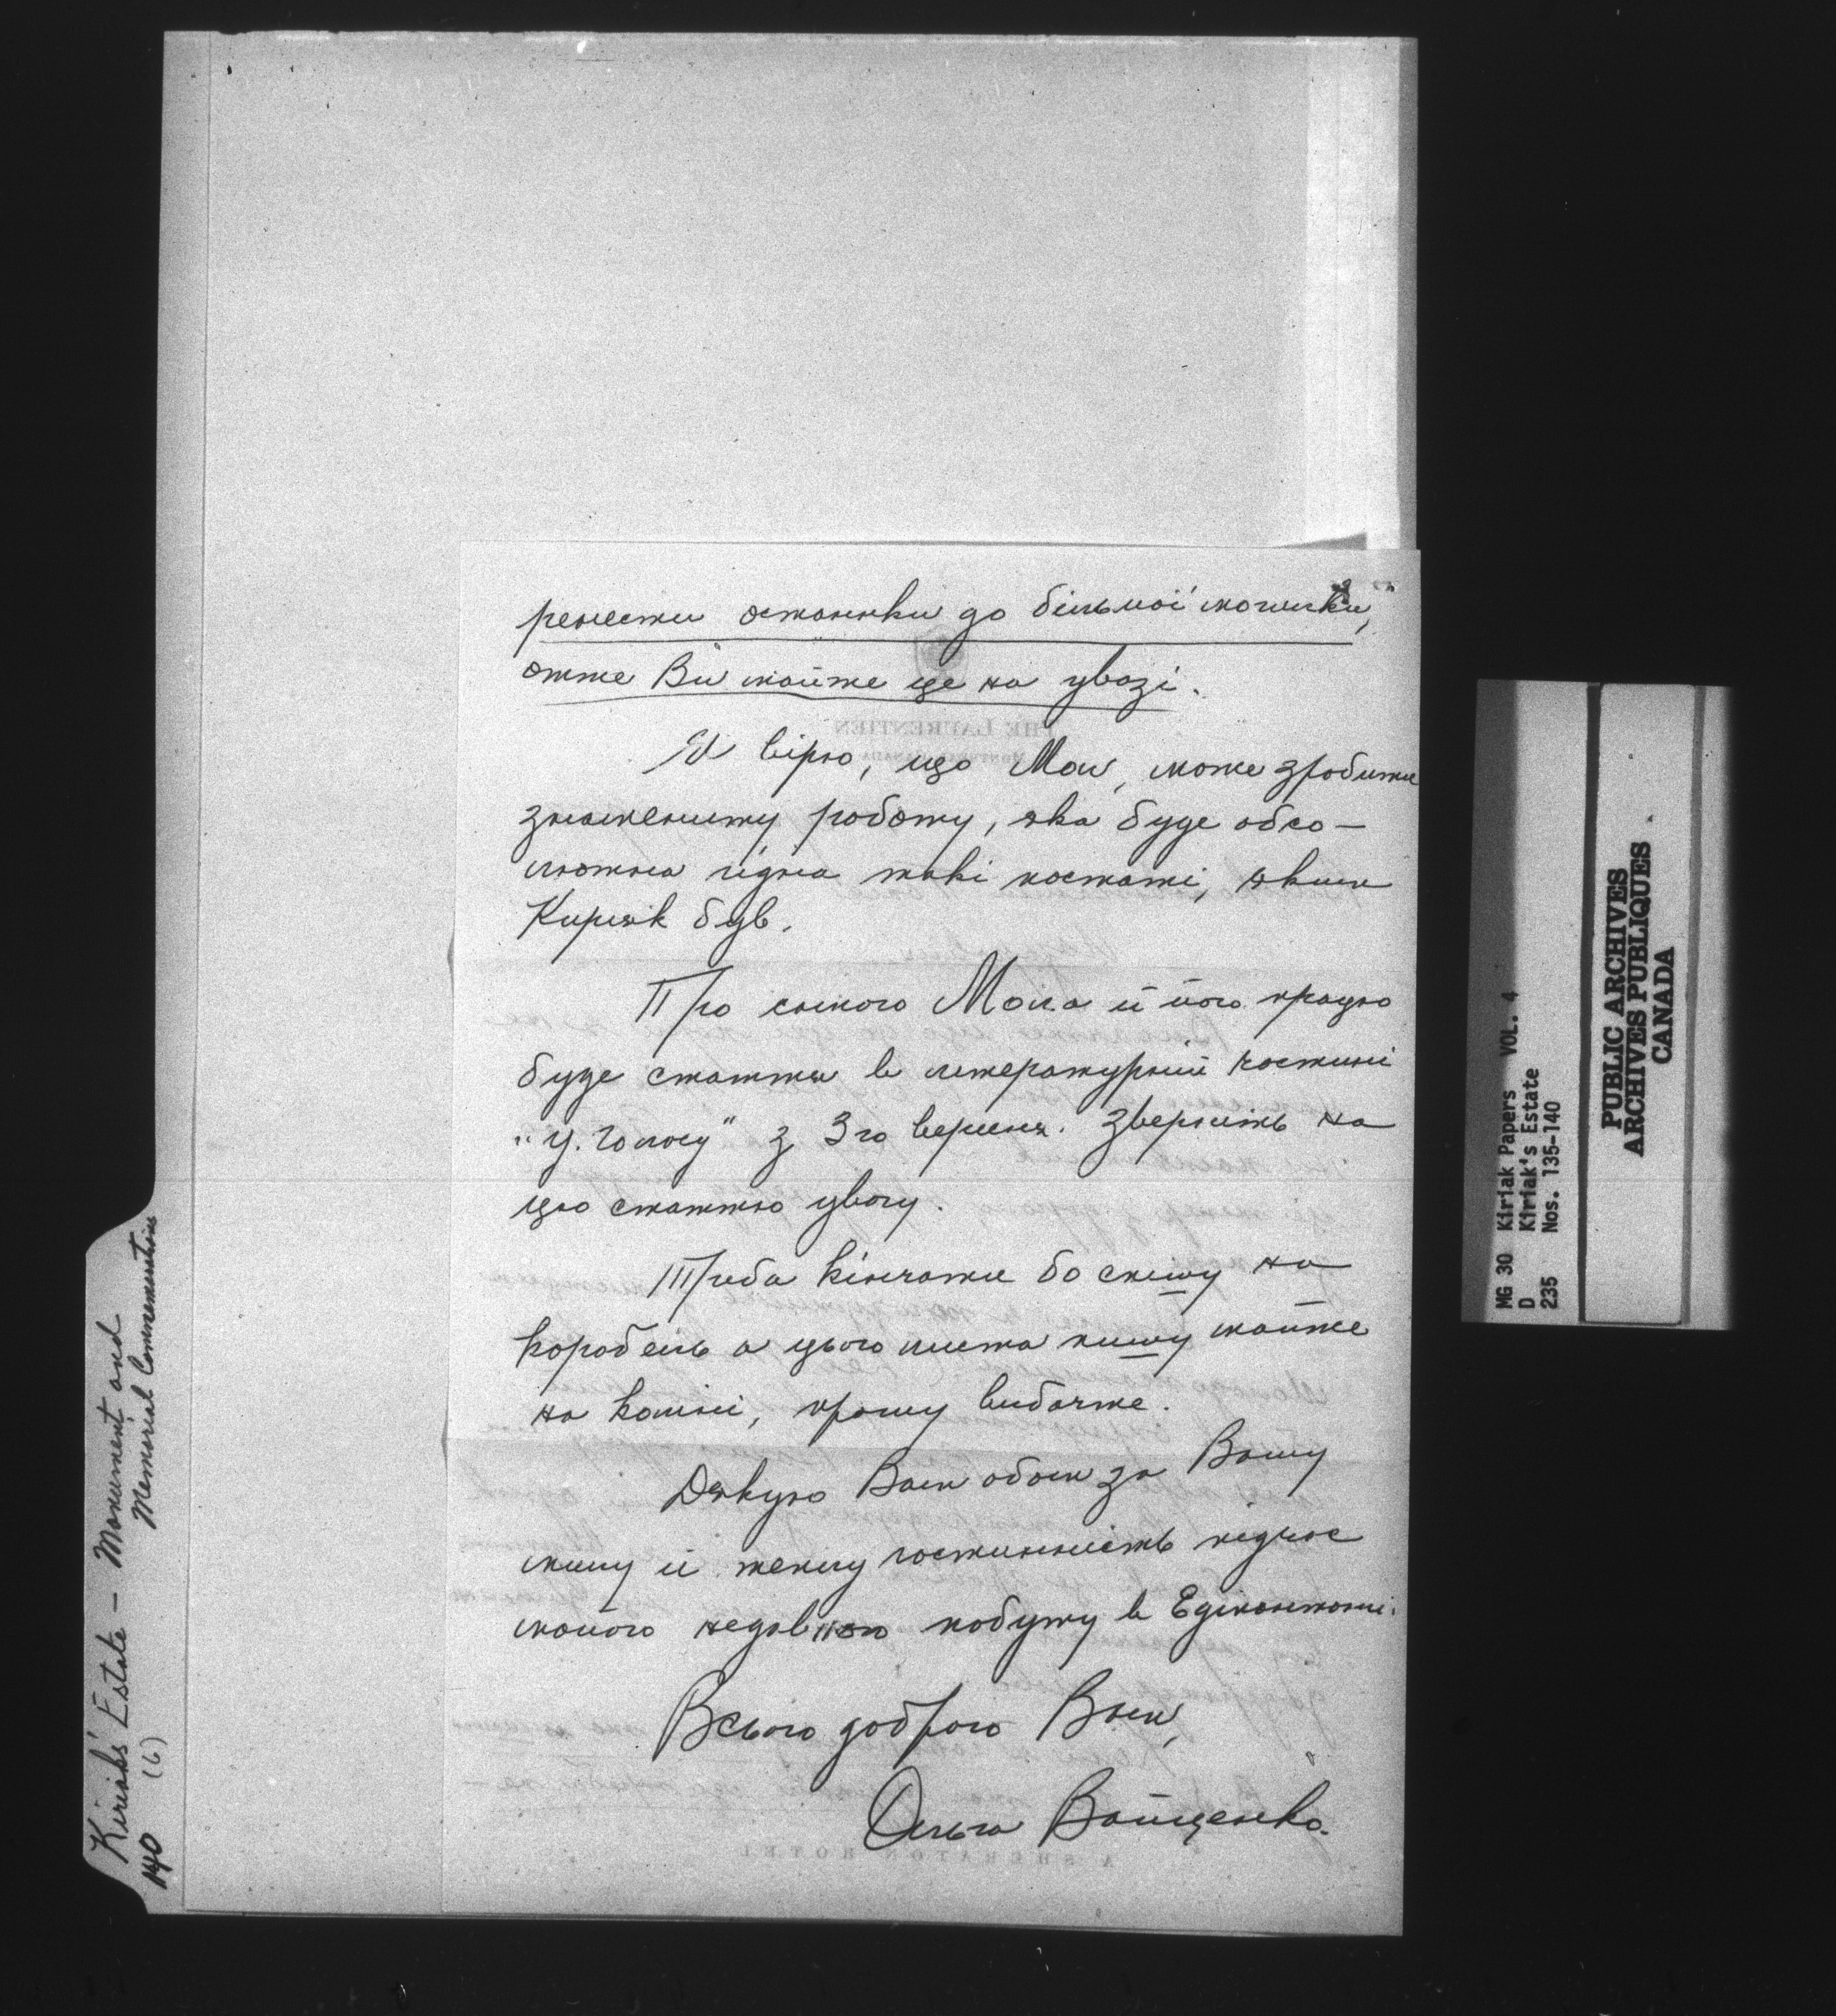 ренести останки до більшої могилки,
отже Ви майте це на увазі.
Я вірю, що Мол, може зробити
знамениту роботу, яка буде абсо-
лютна гідна такі постаті, яким
Кирияк був.
Про самого Мола й його працю
буде стаття в літературній частині
"У. Голосу" з 3го вересня. Зверніть на
цю статтю увагу.
Треба кінчати бо спішу на
корабель а цього листа пишу майже
на коліні, прошу вибачте.
Дякую Вам обом за Вашу
милу й теплу гостинність підчас
мойого недавного побуту в Едмонтоні.
Всього доброго Вам,
Ольга Войценко.
THE LAURENTIEN
MONTREAL CANADA
A SHERATON HOTEL
Kiriak's Estate – Monument and
Memorial Commemorations
140 (6)
MG 30 Kiriak Papers VOL. 4
D Kiriak's Estate
235 Nos. 135-140
PUBLIC ARCHIVES
ARCHIVES PUBLIQUES
CANADA